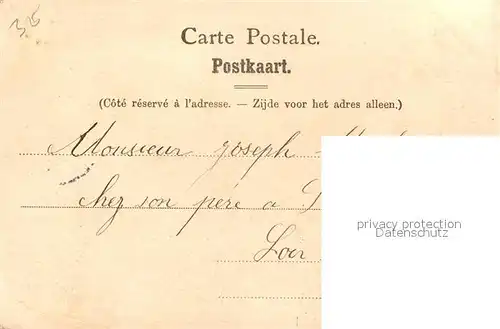 35
Carte Postale.
Postkaart.
(Côté réservé à l'adresse. — Zijde voor het adres alleen.)
Monsieur Joseph
chez son père a
privacy protection
Datenschutz